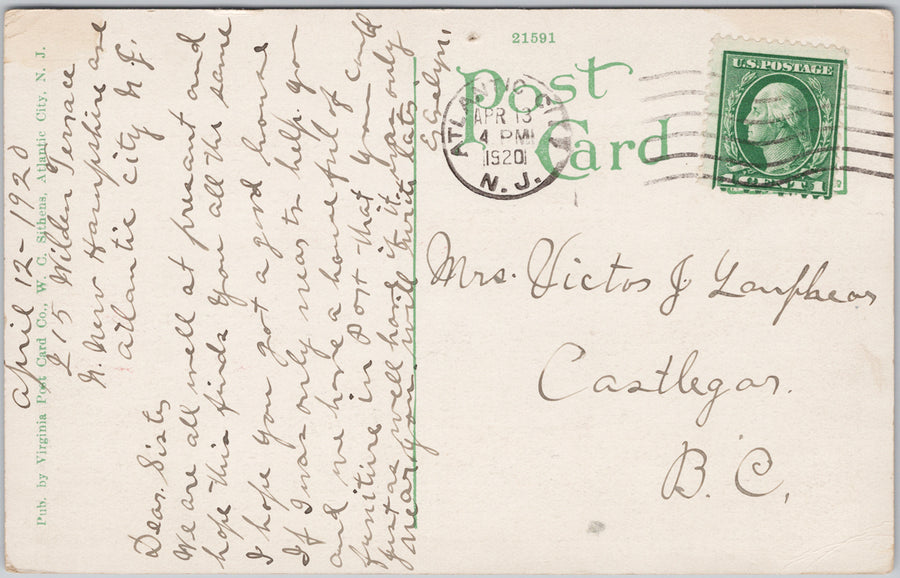 April 12-1920
215 Wilden Terrace
N. New Hampshire ave
Atlantic City N J.
Dear Sister
We are all well at present and
hope this finds you all the same
I hope you got a good house
If I was only near to help you
and we have a house full of
funiture in Post that you could
just as well have if it was only
near you. will write later
Evelyn.
Pub. by Virginia Post Card Co., W. C. Sithens, Atlantic City, N. J.
21591
Post
Card
ATLANTIC CITY
APR 13
4 PM
1920
N. J.
U.S. POSTAGE
1 CENT 1
Mrs. Victor J Lanphear
Castlegar.
B. C.